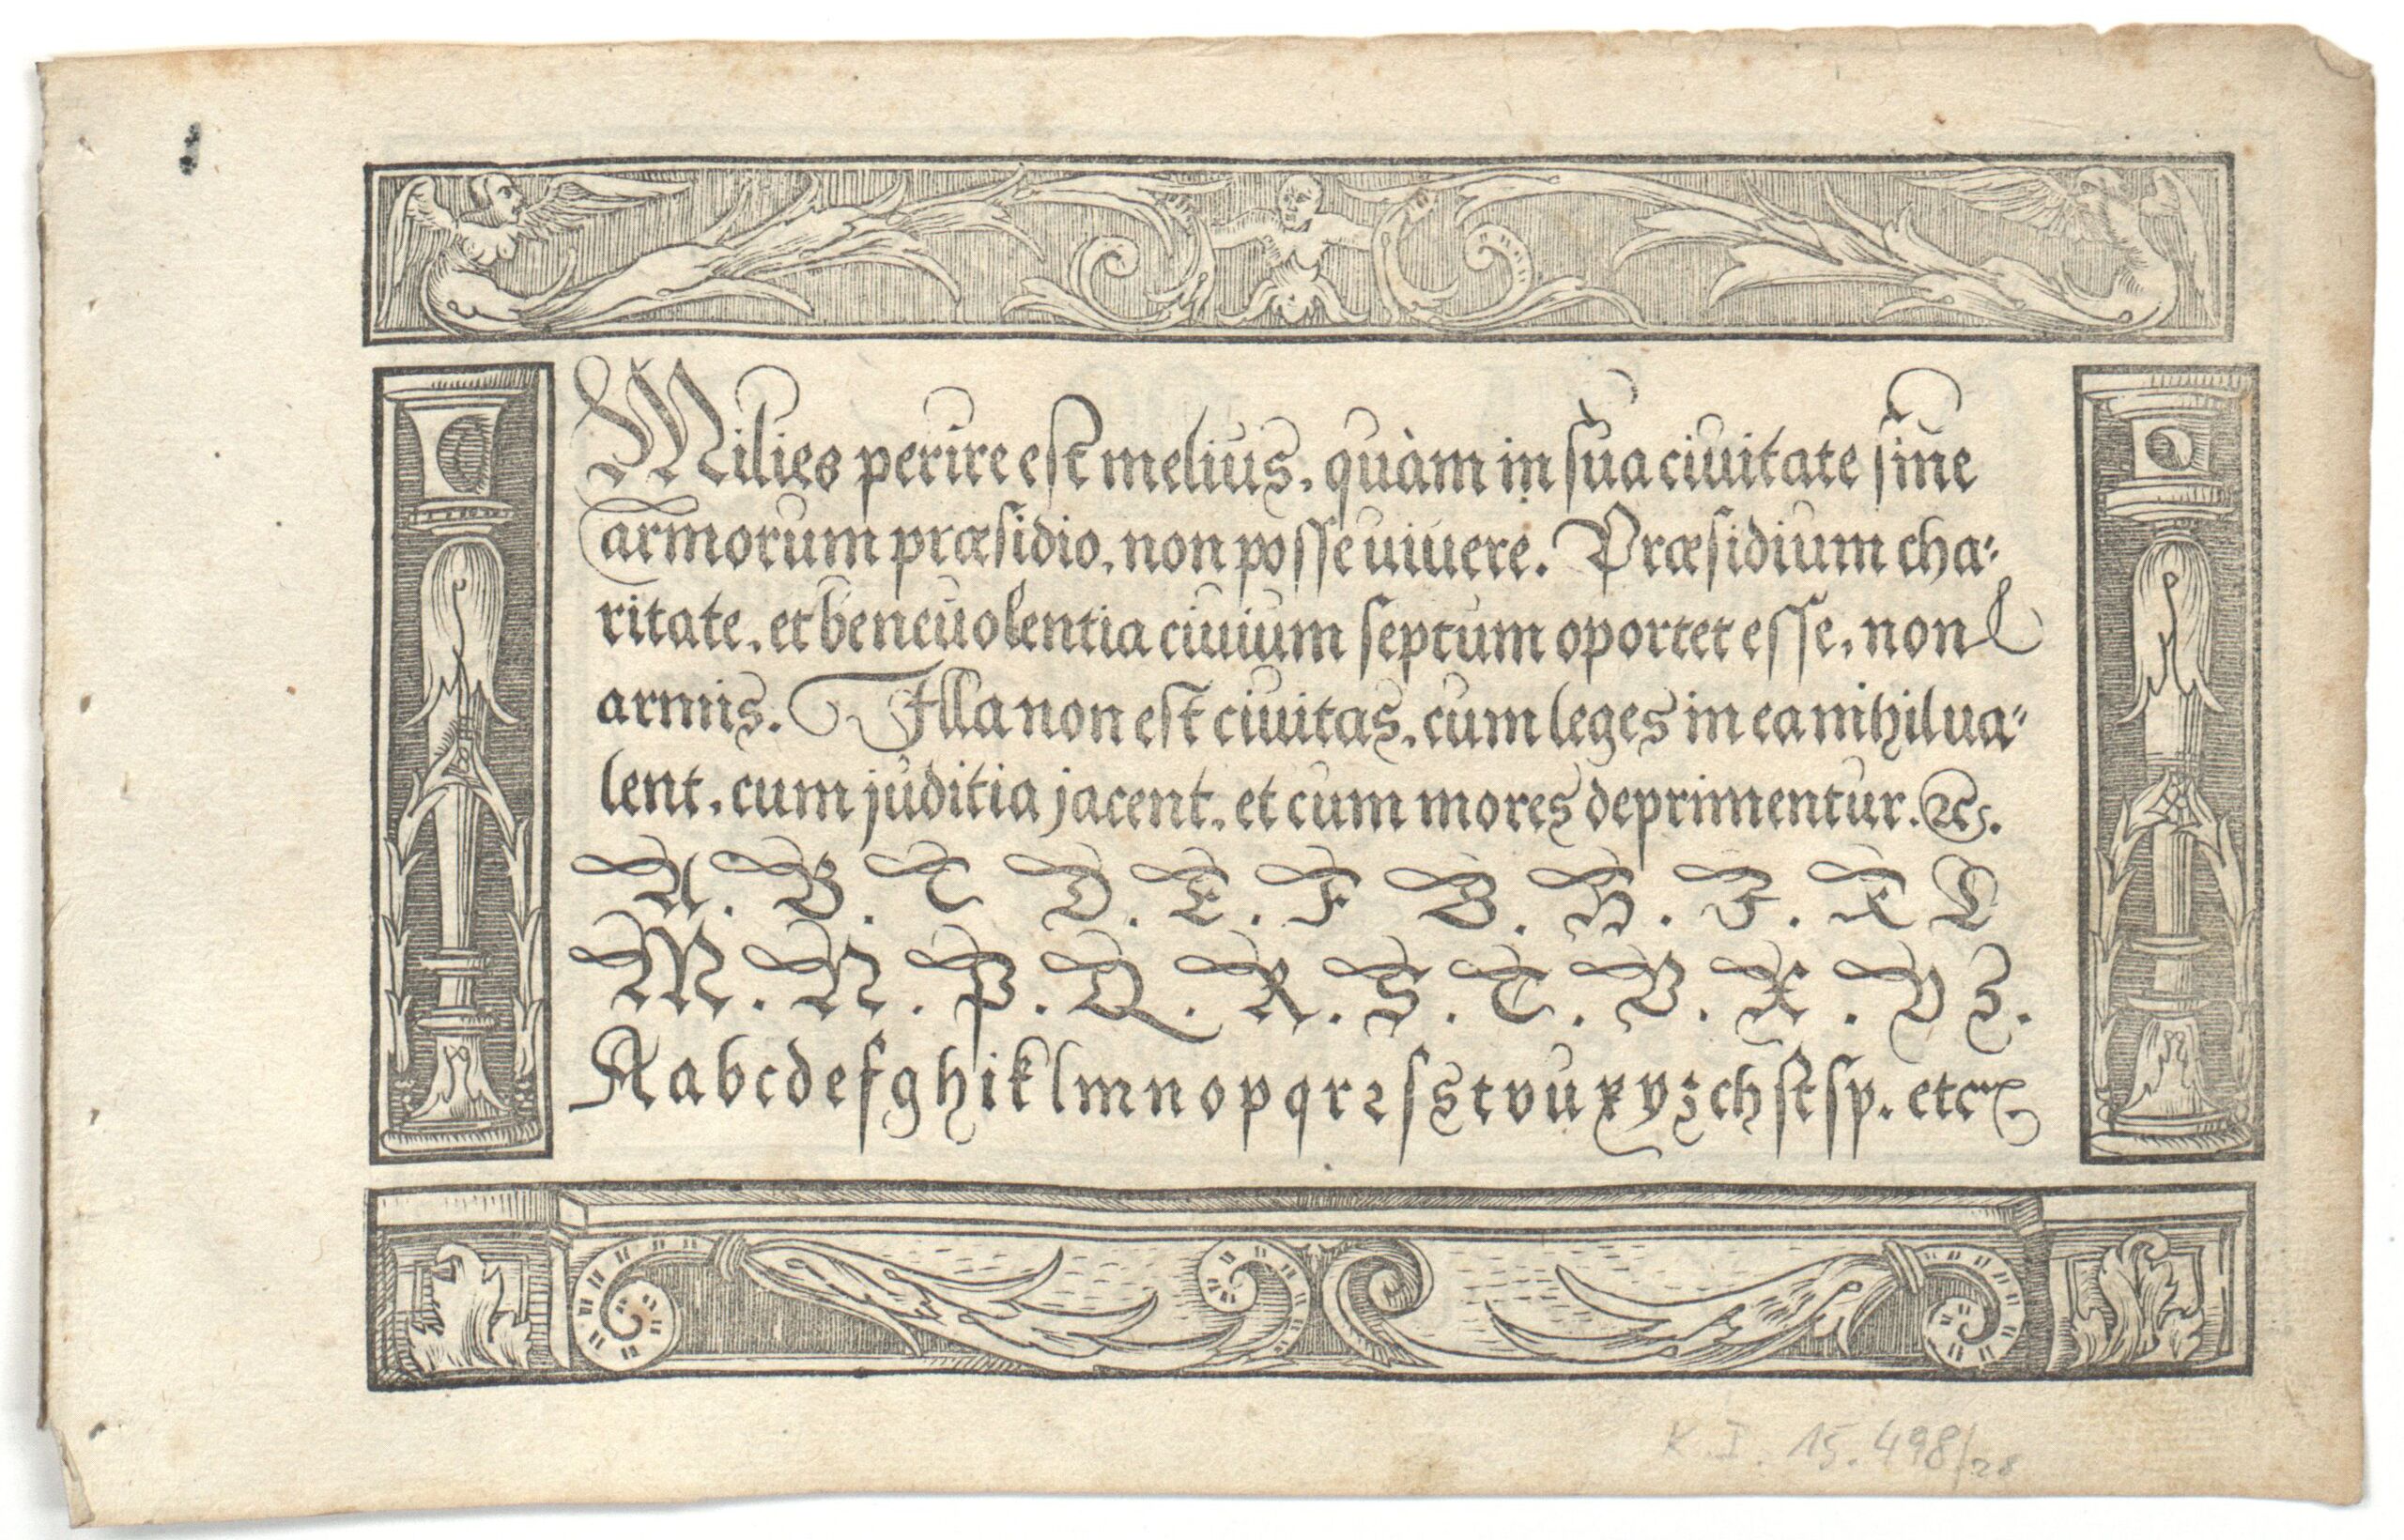 Milies perire est melius, quàm in sua ciuitate sine
armorum præsidio, non posse uiuere. Præsidium cha-
ritate, et beneuolentia ciuium septum oportet esse, non
armis. Illa non est ciuitas, cum leges in ea nihil ua-
lent, cum juditia jacent, et cum mores deprimentur. &c.
A. B. C D. E. F G. H. I. K L
M. N. P. Q. R. S. T. V. X. Y Z.
A a b c d e f g h i k l m n o p q r ꝛ ſ s t v u x y z ch st sp. etc.
K.I. 15.498/28